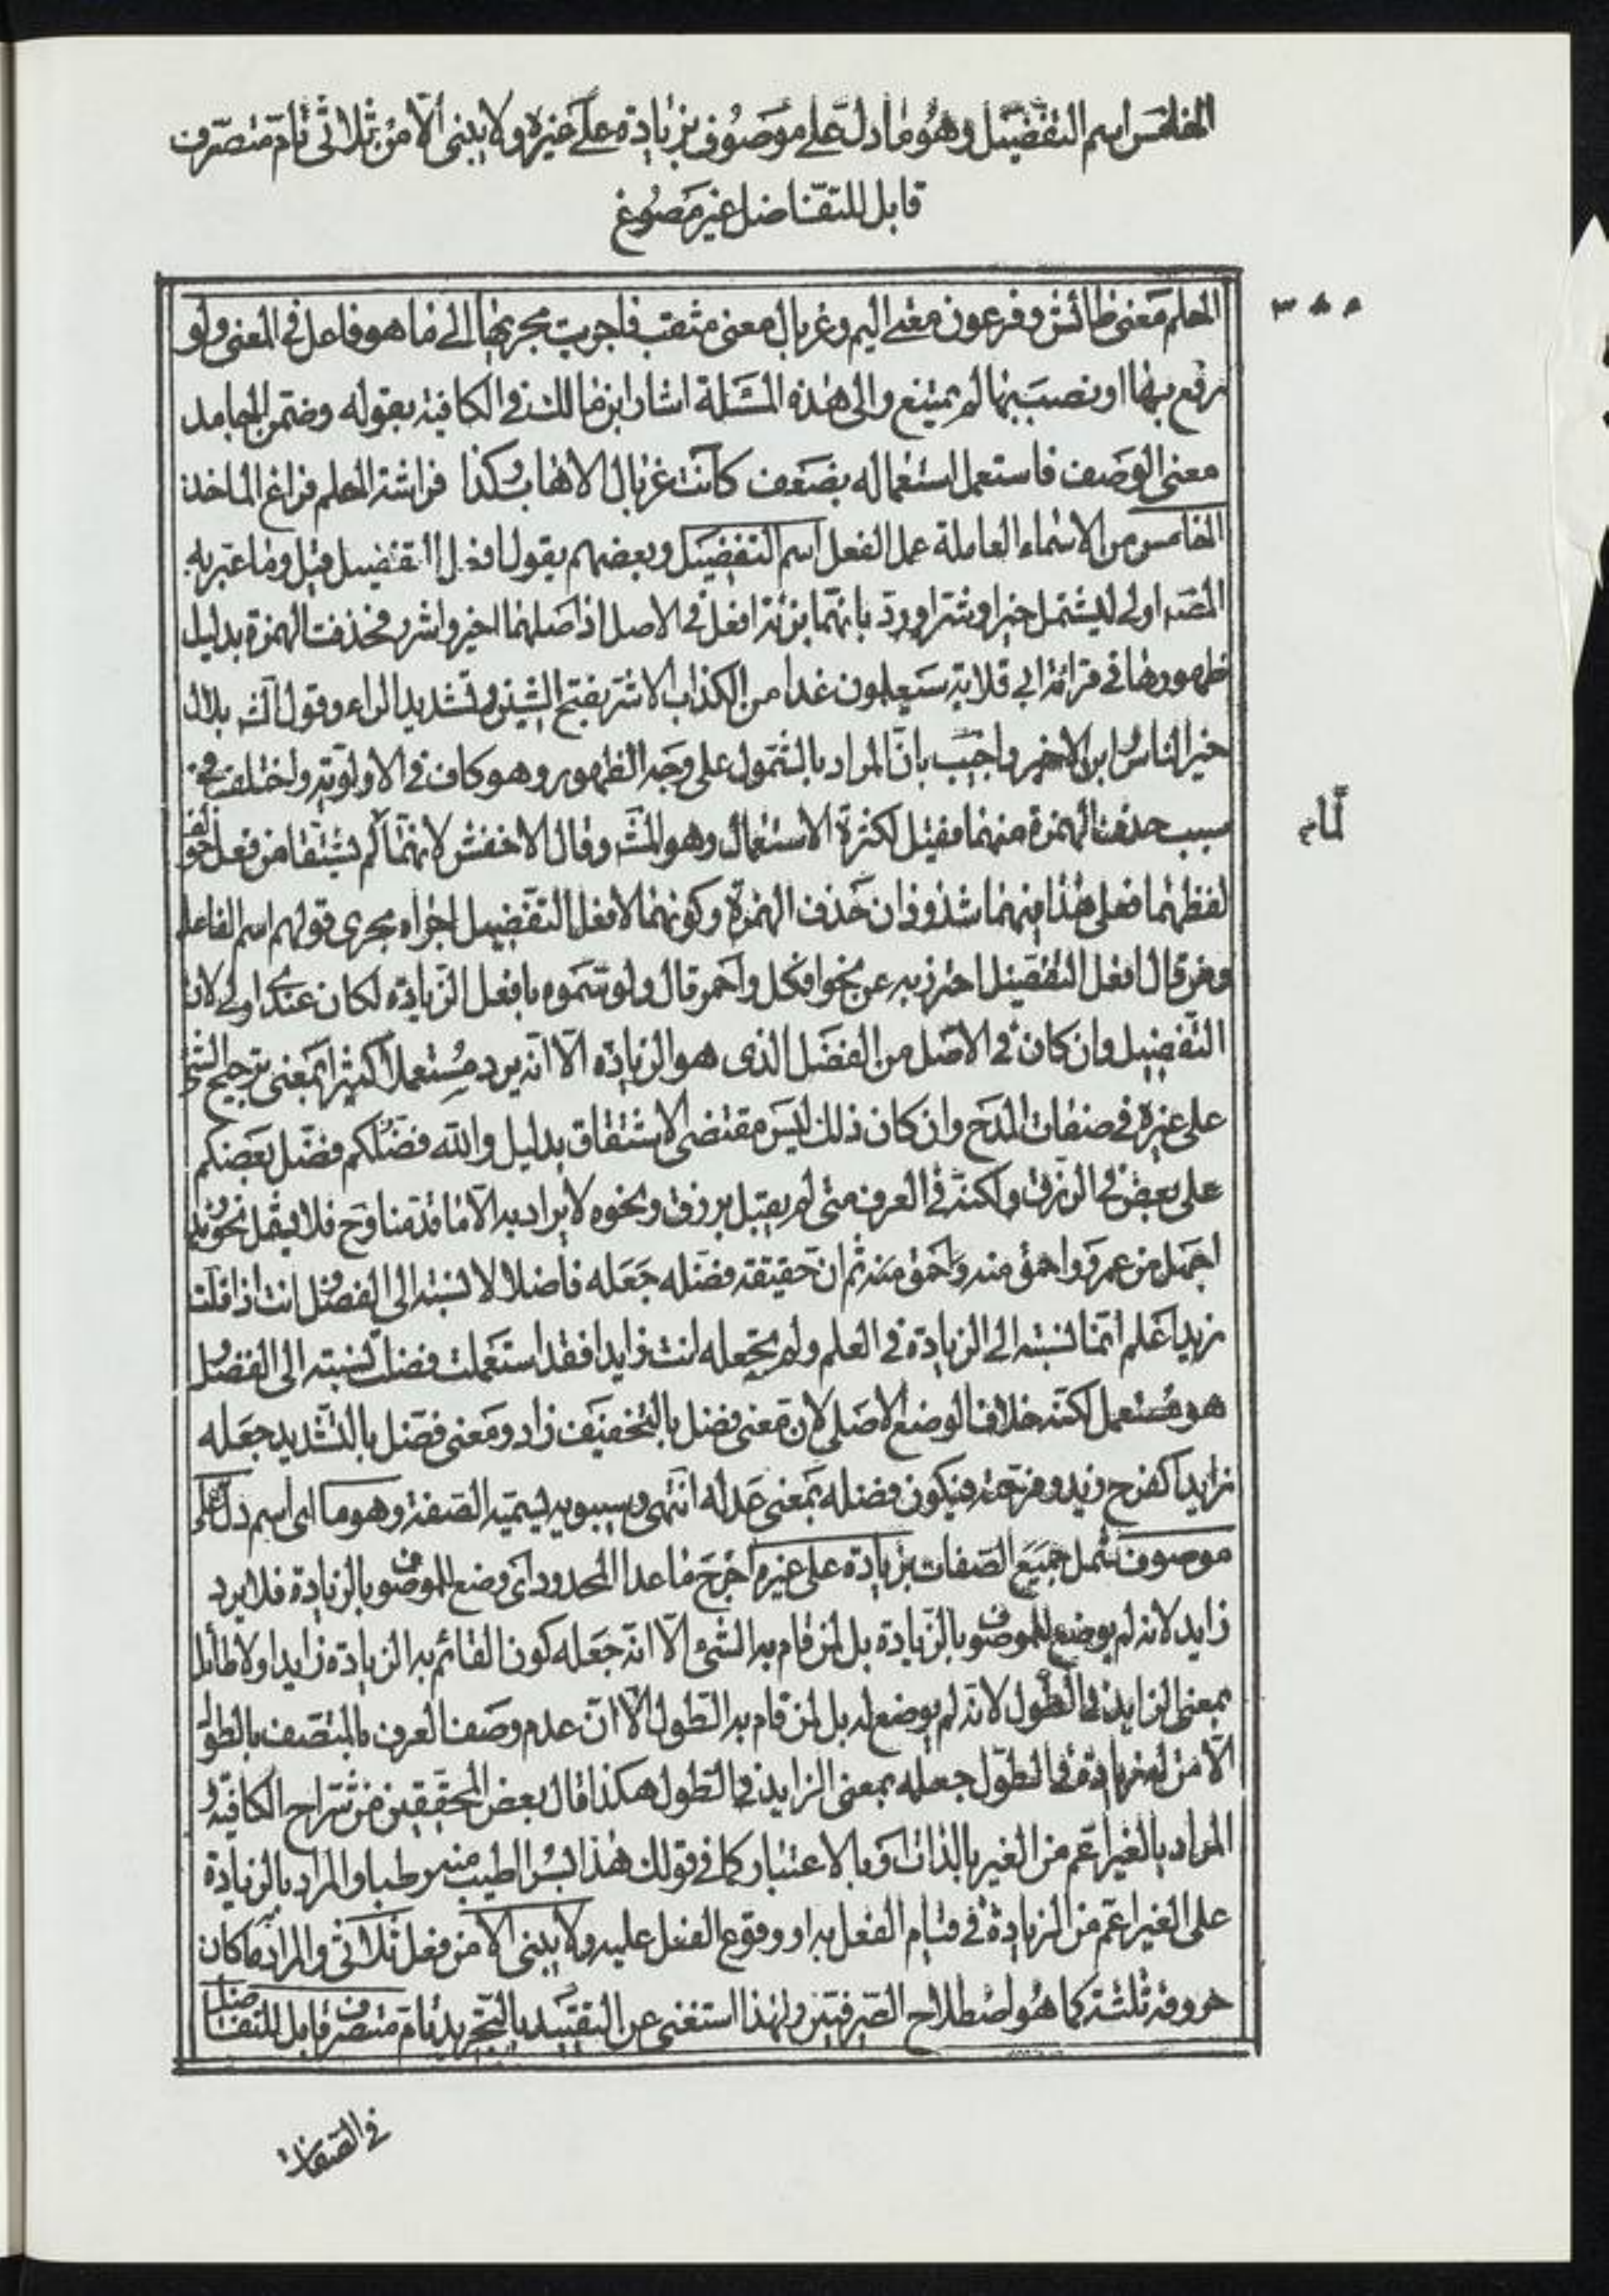 الخامس اسم التفضيل وهو ما دل على موصوف بزيادة على غيره ولا يبنى الا من ثلاثى تام متصرف
قابل للتفاضل غير مصوغ
٣٥٥
الحلم معنى طائش وفرعون معنى اليم وغربال معنى مثقب فاجريت مجريها الى ما هو فاعل فى المعنى ولو
رفع بها او نصب بها لم يمتنع والى هذه المسئلة اشار ابن مالك فى الكافية بقوله وضمن الجامد
معنى الوصف فاستعمل استعماله بضعف كانت غربال الاهاب وكذا فراشة الحلم فراغ الماخذ
الخامس من الاسماء العاملة عمل الفعل اسم التفضيل وبعضهم يقول افعل التفضيل قيل وما عبر به
المصـ اولى ليشتمل خيرا وشرا ورد بانهما بزنة افعل فى الاصل اذ اصلهما اخير واشر فحذفت الهمزة بدليل
ظهورها فى قرائة ابى قلابة سيعلمون غدا من الكذاب الاشر بفتح الشين وتشديد الراء وقول الشـ بلال
خير الناس وابن الاخير واجيب بان المراد بالشمول على وجه الظهور وهو كاف فى الاولوية واختلف فى
سبب حذف الهمزة منهما فقيل لكثرة الاستعمال وهو المشـ وقال الاخفش لانهما لم يشتقا من فعل خولف
لما م
لفظهما فعلى هذا فيهما شذوذان حذف الهمزة وكونهما لا فعل التفضيل اجراه مجرى قولهم اسم الفاعل
ومن قال افعل التفضيل احترز به عن نحو افكل واحمر قال ولو سموه بافعل الزيادة لكان عندى اولى لان
التفضيل وان كان فى الاصل من الفضل الذى هو الزيادة الا انه يرد مستعملا كثيرا بمعنى ترجيح الشئ
على غيره فى صفات المدح وان كان ذلك ليس مقتضى الاشتقاق بدليل والله فضلكم فضل بعضكم
على بعض فى الرزق ولكنه فى العرف متى لم يقيل برزق ونحوه لا يراد به الا ما قدمنا وح فلا يقل نحو زيد
اجهل من عمرو واحمق منه واحمق منه ثم ان حقيقة فضله جعله فاضلا لا لنسبته الى الفضل انت اذا قلت
زيد اعلم انما نسبته الى الزيادة فى العلم ولم تجعله انت زايدا فقد استعملت فضلت لنسبته الى الفضل و
هو مستعمل لكنه خلاف الوضع الاصلى لان معنى فضل بالتخفيف زاد ومعنى فضل بالتشديد جعله
زايدا كفرح زيد وفرحته فيكون فضله بمعنى عدله انتهى وسيبويه يسميه الصفة وهو ما اى اسم دل على
موصوف شمل جميع الصفات بزيادة على غيره اخرج ما عدا المحدود اى وضع للموصوف بالزيادة فلا يرد
زايد لانه لم يوضع للموصوف بالزيادة بل لمن قام به الشئ الا انه جعله كون القائم به الزيادة زايدا ولا طائل
بمعنى الزايد فى الطول لانه لم يوضع له بل لمن قام به الطول الا ان عدم وصف العرف بالمتصف بالطول
الا من له زيادة فى الطول جعله بمعنى الزايد فى الطول هكذا قال بعض المحققين من شراح الكافية و
المراد بالغير اعم من الغير بالذات او بالاعتبار كما فى قولك هذا بسرا اطيب منه رطبا والمراد بالزيادة
على الغير اعم من الزيادة فى قيام الفعل به او وقوع الفعل عليه ولا يبنى الا من فعل ثلاثى والمراد به ما كان
حروفه ثلثة كما هو اصطلاح الصرفيين ولهذا استغنى عن التقييد بالتجريد تام متصرف قابل للتفاضل
فى الصفات